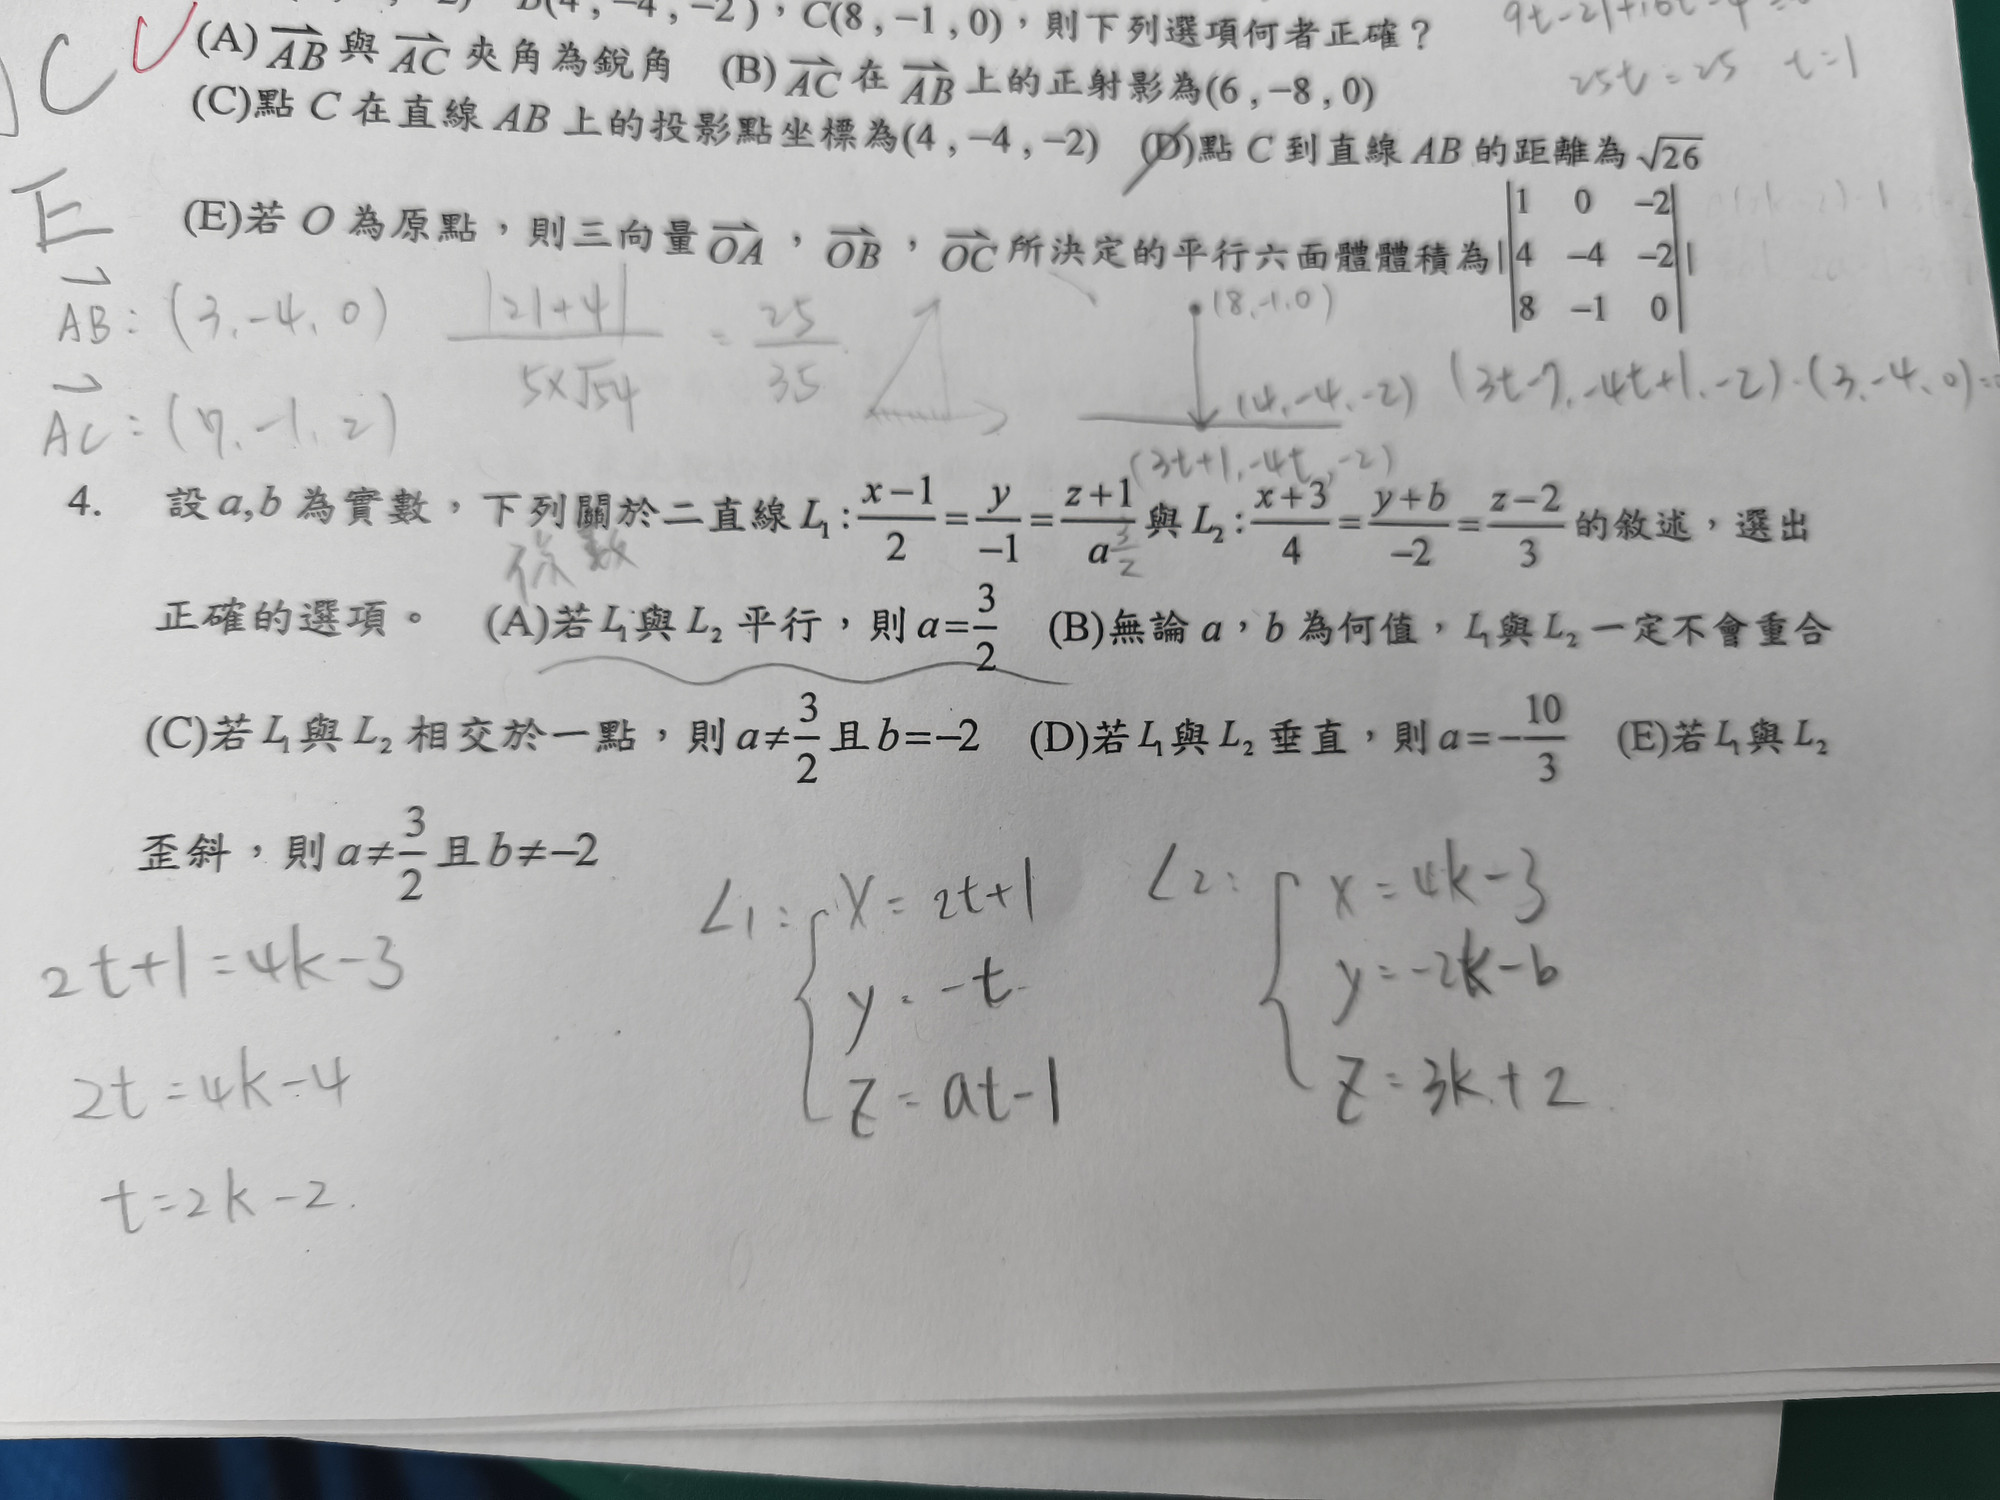 B(4 , −4 , −2 )，C(8 , −1 , 0)，則下列選項何者正確？
9t−21+16t−4
C (A) AB 與 AC 夾角為銳角 (B) AC 在 AB 上的正射影為(6 , −8 , 0)
25t = 25 t=1
(C)點 C 在直線 AB 上的投影點坐標為(4 , −4 , −2) (D)點 C 到直線 AB 的距離為 √26
E (E)若 O 為原點，則三向量 OA ， OB ， OC 所決定的平行六面體體積為| |1 0 −2| |
|4 −4 −2|
|8 −1 0|
AB : (3, −4, 0) |21+4| / 5×√54 = 25/35 (8,−1,0)
AC : (7, −1, 2) (4, −4, −2) (3t−7, −4t+1, −2)·(3, −4, 0)=
(3t+1, −4t, −2)
4. 設 a,b 為實數，下列關於二直線 L₁ : (x−1)/2 = y/−1 = (z+1)/a 與 L₂ : (x+3)/4 = (y+b)/−2 = (z−2)/3 的敘述，選出
係數 3/2
正確的選項。 (A)若 L₁與 L₂ 平行，則 a=3/2 (B)無論 a，b 為何值，L₁與 L₂ 一定不會重合
(C)若 L₁與 L₂ 相交於一點，則 a≠3/2 且 b=−2 (D)若 L₁與 L₂ 垂直，則 a=−10/3 (E)若 L₁與 L₂
歪斜，則 a≠3/2 且 b≠−2
2t+1=4k−3
2t=4k−4
t=2k−2.
L1: { x = 2t+1
y = −t
z = at−1
L2: { x = 4k−3
y = −2k−b
z = 3k+2